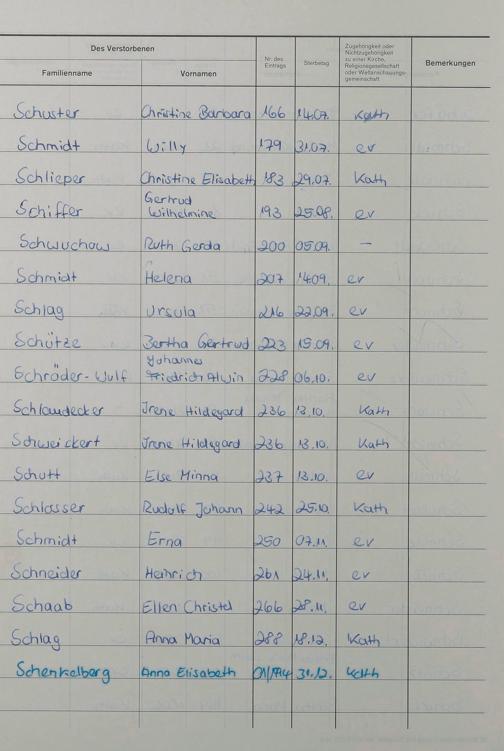 Des Verstorbenen
Familienname Vornamen Nr. des Eintrags Sterbetag Zugehörigkeit oder Nichtzugehörigkeit zu einer Kirche, Religionsgesellschaft oder Weltanschauungsgemeinschaft Bemerkungen
Schuster Christine Barbara 166 14.07. Kath
Schmidt Willy 179 31.07. ev
Schlieper Christine Elisabeth 183 29.07. Kath
Schiffer Gertrud Wilhelmine 193 25.08. ev
Schwuchow Ruth Gerda 200 05.09. —
Schmidt Helena 207 14.09. ev
Schlag Ursula 216 22.09. ev
Schütze Bertha Gertrud 223 15.09. ev
Schröder-Wulf Johannes Friedrich Alwin 228 06.10. ev
Schlaudecker Irene Hildegard 236 13.10. Kath
Schweickert Irene Hildegard 236 13.10. Kath
Schutt Else Minna 237 13.10. ev
Schlosser Rudolf Johann 242 25.10. Kath
Schmidt Erna 250 07.11. ev
Schneider Heinrich 261 24.11. ev
Schaab Ellen Christel 266 28.11. ev
Schlag Anna Maria 288 18.12. Kath
Schenkelberg Anna Elisabeth 31.12. Kath